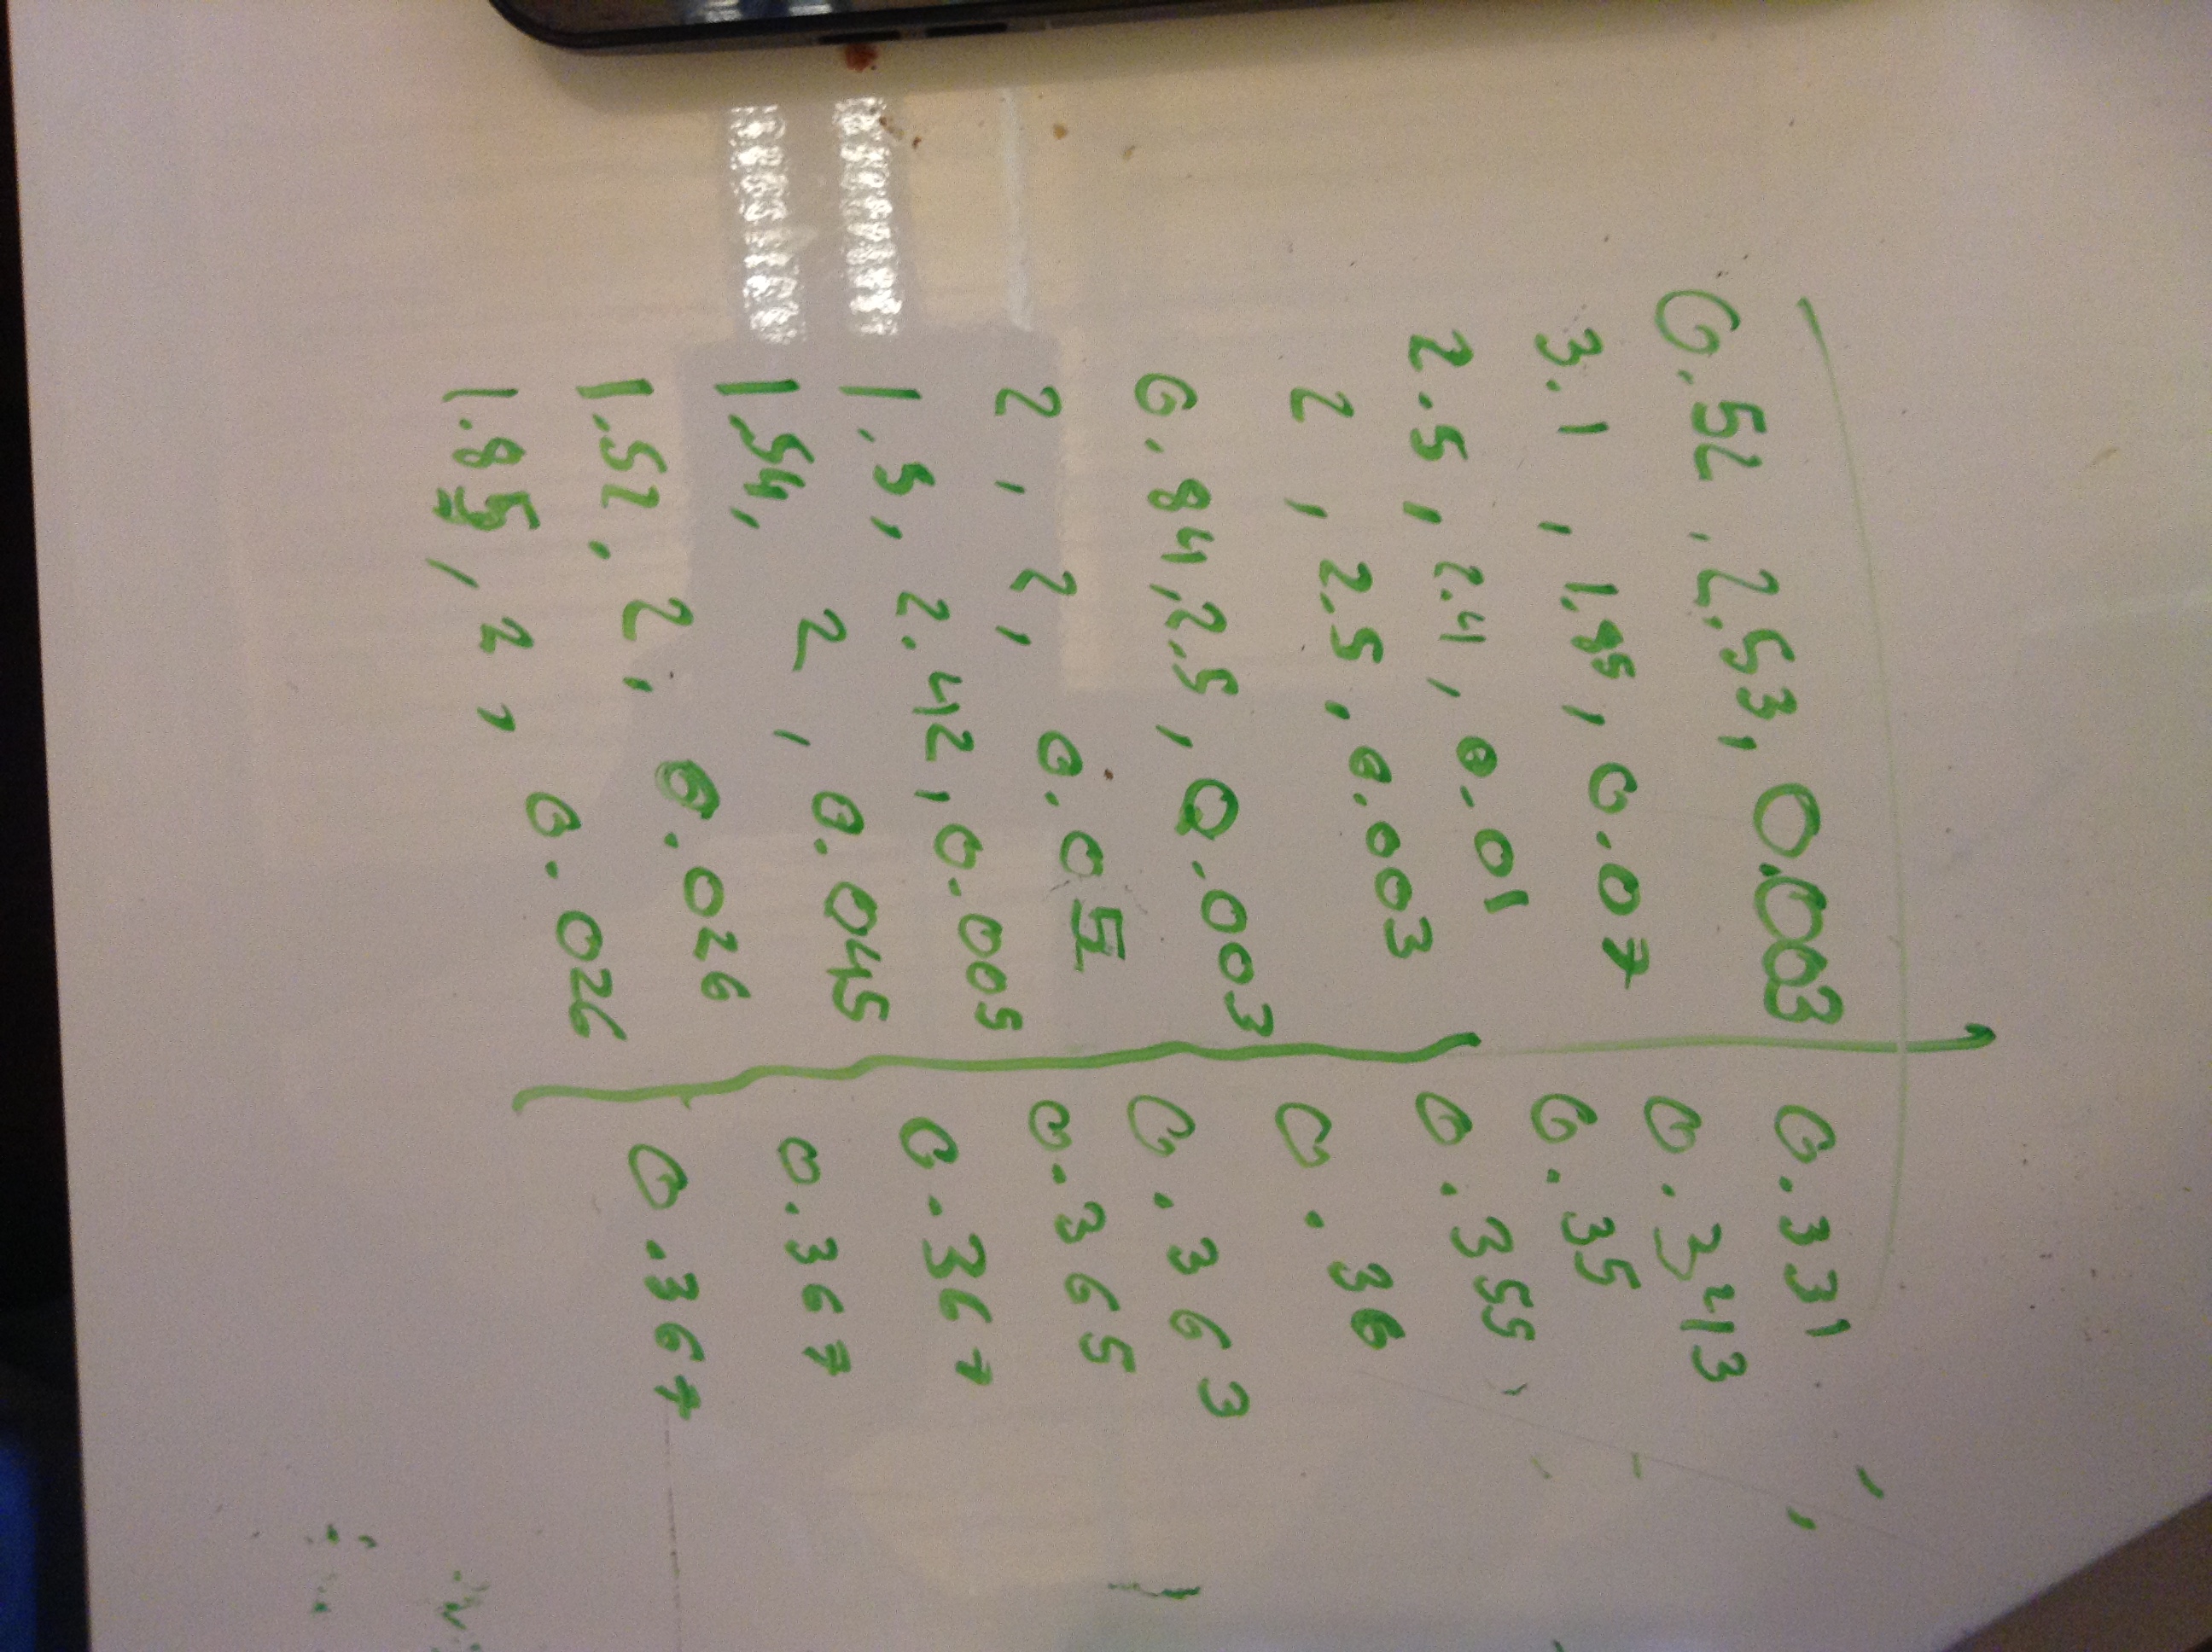 0.52, 2.53, 0.003 0.331
3.1, 1.85, 0.07 0.3413
2.5, 2.4, 0.01 0.35
2, 2.5, 0.003 0.355
0.84, 2.5, 0.003 0.36
2, 2, 0.05 0.363
1.5, 2.42, 0.005 0.365
1.54, 2, 0.045 0.367
1.52, 2, 0.026 0.367
1.85, 2, 0.026 0.367